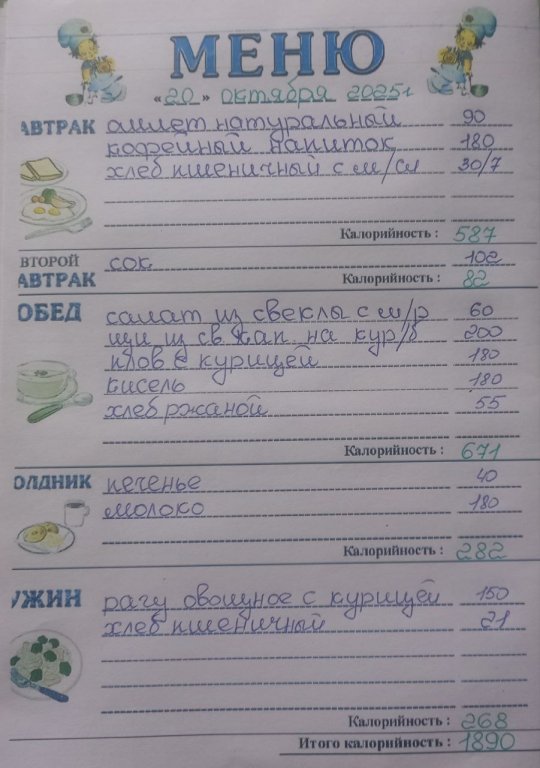 МЕНЮ
«20» октября 2025г
АВТРАК омлет натуральный 90
кофейный напиток 180
хлеб пшеничный с м/сл 30/7
Калорийность : 587
ВТОРОЙ
АВТРАК сок 102
Калорийность : 82
ОБЕД салат из свеклы с м/р 60
щи из св. кап на кур/б 200
плов с курицей 180
кисель 180
хлеб ржаной 55
Калорийность : 671
ОЛДНИК печенье 40
молоко 180
Калорийность : 282
УЖИН рагу овощное с курицей 150
хлеб пшеничный 21
Калорийность : 268
Итого калорийность : 1890